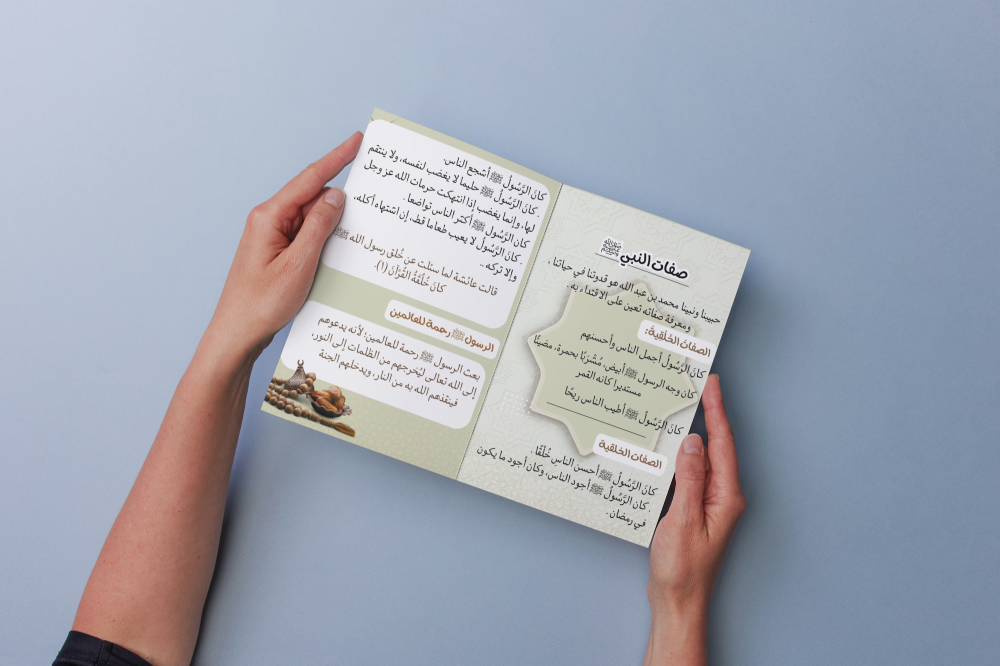 صفات النبي ﷺ
حبيبنا ونبينا محمد بن عبد الله هو قدوتنا في حياتنا ،
ومعرفة صفاته تعين على الاقتداء به .
الصفات الخَلْقِيةُ:
كانَ الرَّسُولُ أجمل الناس وأحسنهم
كان وجه الرسول ﷺ أبيض، مُشْرَبًا بحمرة، مضيئًا
مستديرا كانه القمر
كانَ الرَّسُولُ ﷺ أطيب الناس ريحًا
الصفات الخلقية
كانَ الرَّسُولُ ﷺ أحسن الناسِ خُلُقًا .
. كان الرَّسُولُ ﷺ أجود الناس، وكان أجود ما يكون
في رمضان .
كانَ الرَّسُولُ ﷺ أشجع الناس.
. كانَ الرَّسُولُ ﷺ حليما لا يغضب لنفسه، ولا ينتقم
لها، وإنما يغضب إذا انتهكت حرمات الله عز وجل
كان الرسول ﷺ أكثر الناس تواضعا .
. كانَ الرَّسُولُ لا يعيب طعاما قط، إن اشتهاه أكله،
وإلا تركه ..
قالت عائشة لما سئلت عن خُلق رسول الله ﷺ
كانَ خُلُقُهُ الْقُرْآنَ (١).
الرسول ﷺ رحمة للعالمين
بعث الرسول ﷺ رحمة للعالمين؛ لأنه يدعوهم
إلى الله تعالى ليُخرجهم من الظلمات إلى النور،
فينقذهم الله به من النار، ويدخلهم الجنة